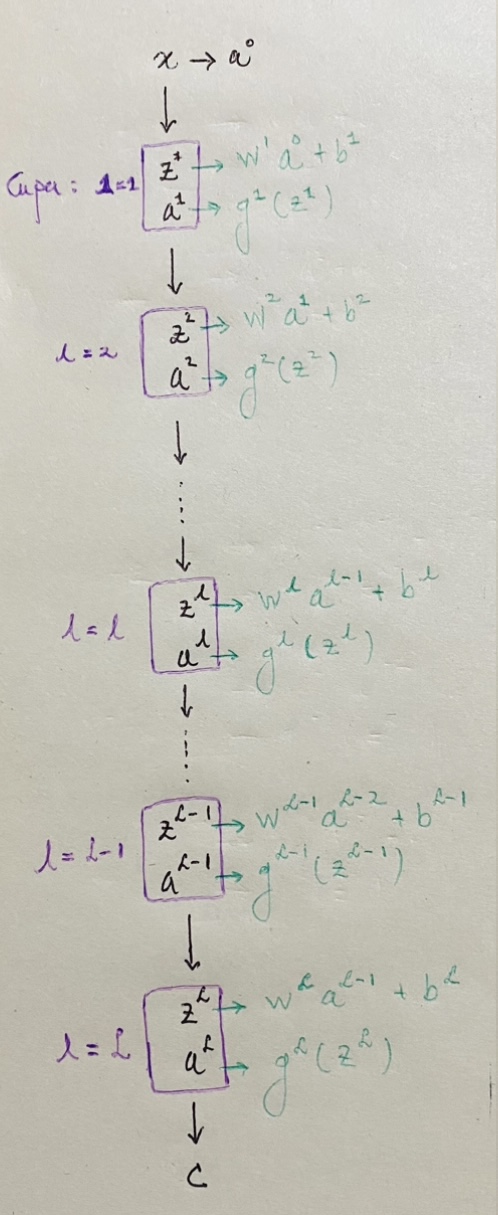 x → a⁰
↓
Capa: l=1 z¹ → w¹a⁰ + b¹
a¹ → g¹(z¹)
↓
l=2 z² → w²a¹ + b²
a² → g²(z²)
↓
.....
↓
l=l z^l → w^l a^{l-1} + b^l
a^l → g^l(z^l)
↓
.....
l=L-1 z^{L-1} → w^{L-1} a^{L-2} + b^{L-1}
a^{L-1} → g^{L-1}(z^{L-1})
↓
l=L z^L → w^L a^{L-1} + b^L
a^L → g^L(z^L)
↓
C